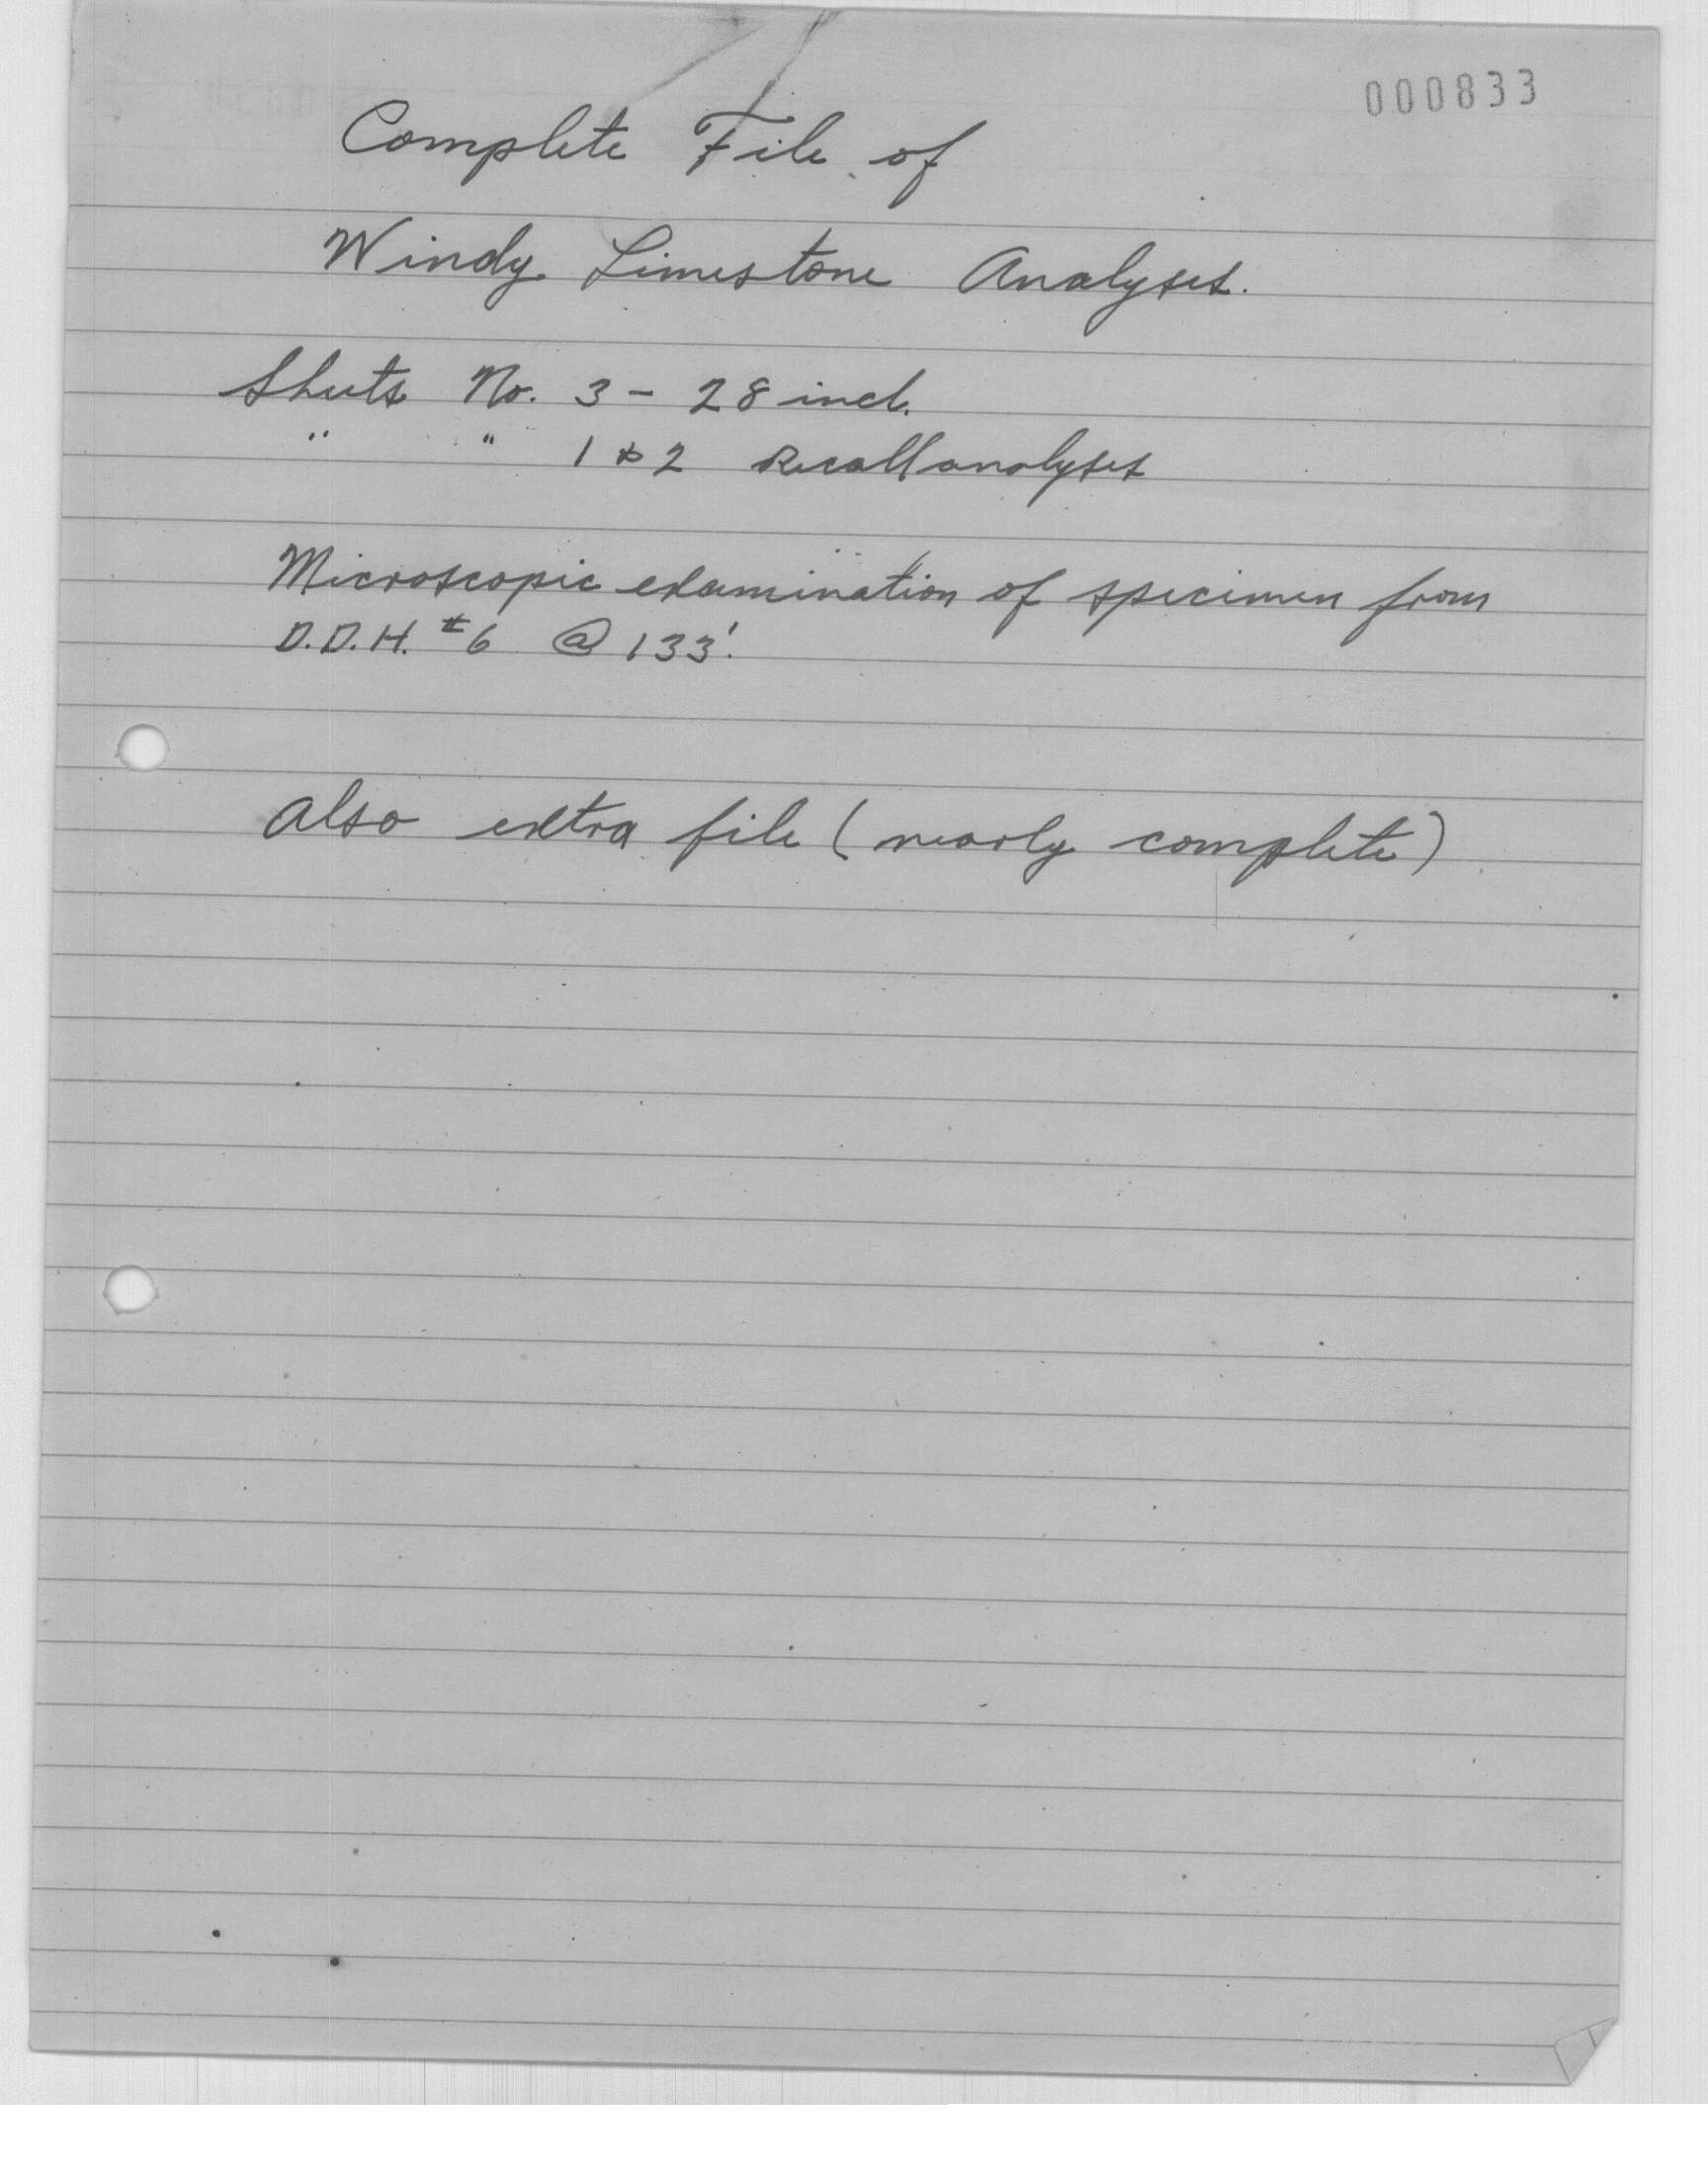 000833
Complete File of
Windy Limestone Analyses.
Sheets No. 3 - 28 incl.
" " 1 & 2 Recall analyses
Microscopic examination of specimen from
D.D.H. #6 @ 133'.
Also extra file (nearly complete)